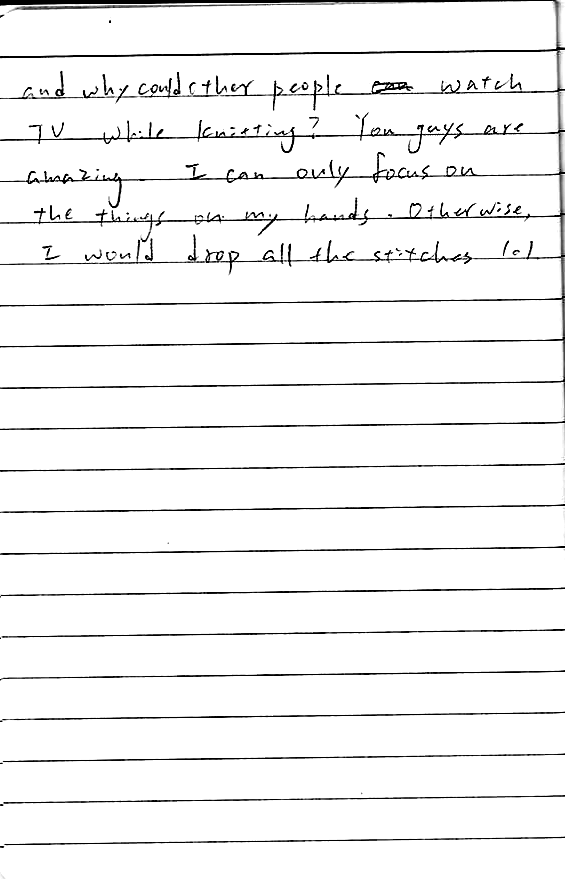 and why could other people watch
TV while knitting? You guys are
amazing. I can only focus on
the things on my hands. Otherwise,
I would drop all the stitches lol